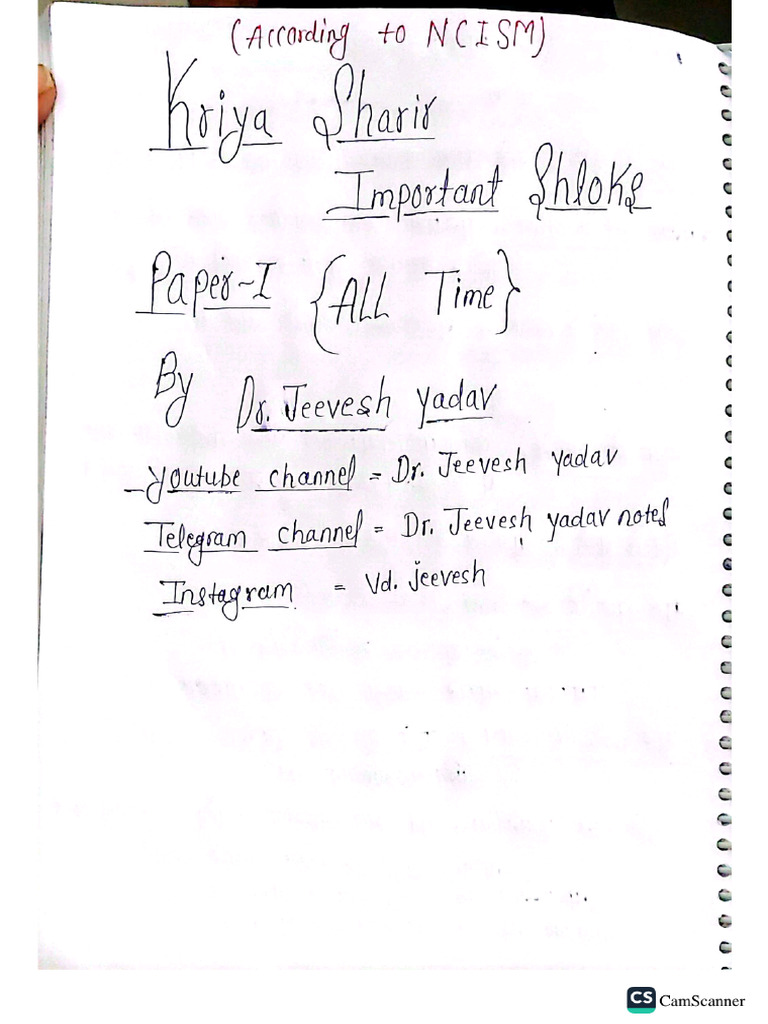 (According to NCISM)
Kriya Sharir
Important Shloks
Paper-I {ALL Time}
By Dr. Jeevesh yadav
Youtube channel = Dr. Jeevesh yadav
Telegram channel = Dr. Jeevesh yadav notes
Instagram = Vd. jeevesh
CS CamScanner